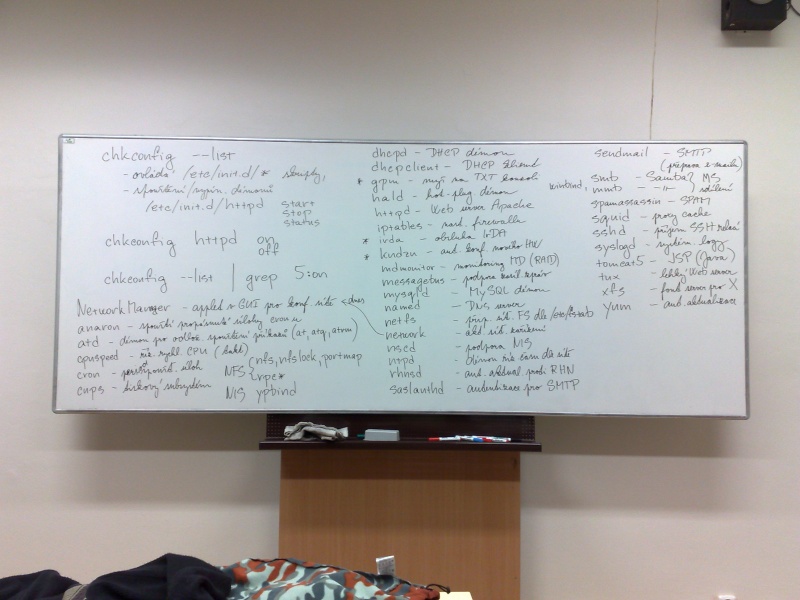 chkconfig --list
- ovládá /etc/init.d/* skripty,
- spouštění/vypín. démonů
/etc/init.d/httpd start
stop
status
chkconfig httpd on
off
chkconfig --list | grep 5:on
NetworkManager - applet v GUI pro konf. sítě
anacron - spouští propásnuté úlohy cronu
atd - démon pro odlož. spouštění příkazů (at, atq, atrm)
cpuspeed - říz. rychl. CPU
cron - úloh
cups - tiskový subsystém
NFS {nfs, nfslock, portmap
{rpc*
NIS ypbind
dhcpd - DHCP démon
dhcpclient - DHCP klient
* gpm - myš na TXT konzoli
hald - hot-plug démon
httpd - Web server Apache
iptables - nast. firewallu
* irda - obsluha IrDA
* kudzu - aut. konf. nového HW
mdmonitor - monitoring MD (RAID)
messagebus - podpora
mysqld - MySQL démon
named - DNS server
netfs - síť. FS dle /etc/fstab
network - akt. síť. zařízení
nscd - podpora NIS
ntpd - démon čas dle sítě
rhnsd - aut. aktual. RHN
saslauthd - autentizace pro SMTP
sendmail - SMTP
(přeprava e-mailů)
winbind, smb - Samba? MS
nmb - -||- } sdílení
spamassassin - SPAM
squid - proxy cache
sshd - příjem SSH relací
syslogd - systém. logy
tomcat5 - JSP (Java)
tux - lehký Web server
xfs - font server pro X
yum - aut. aktualizace